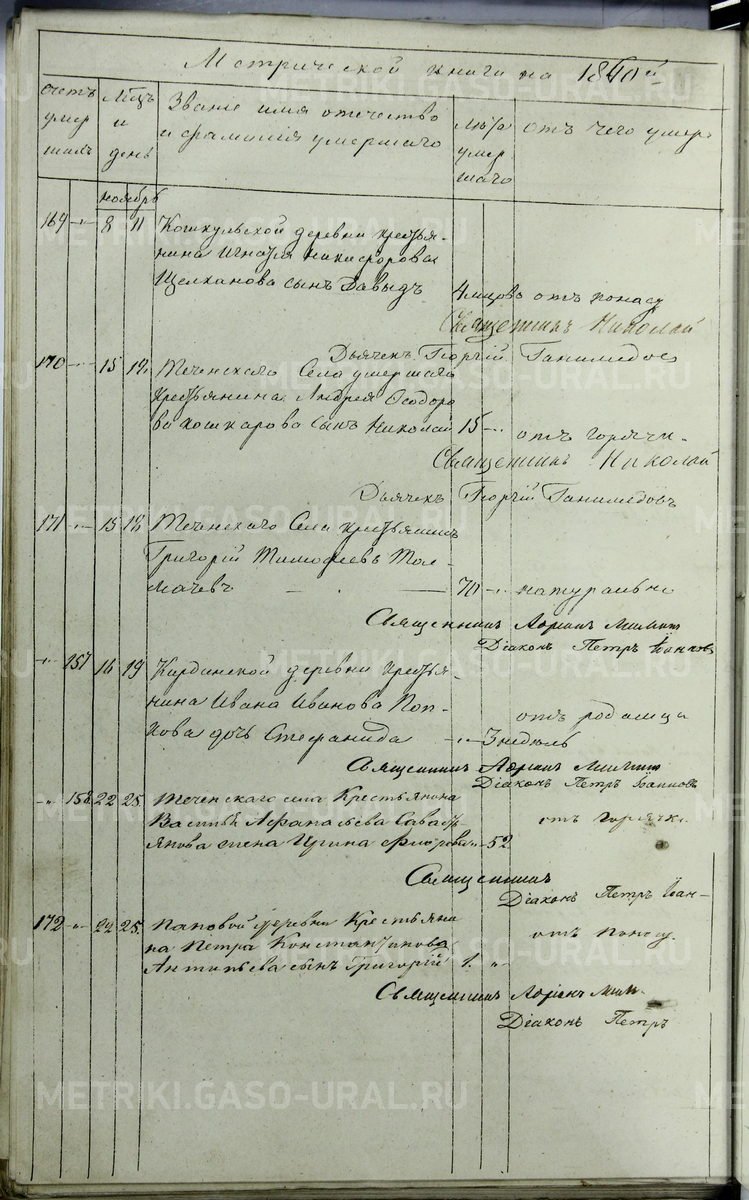 Метрической книги на 1840й
счетъ умер шихъ
Мцъ и день
Званіе имя отечество
и фамилія умершаго
Лѣта умер шаго
отъ чего умеръ
ноябрь
169 -„- 8 11 Кошкульской деревни кресть-
янина Игнатья Никифорова
Щелканова сынъ Давыдъ
4 мцовъ отъ поносу
Священникъ Николай
Дьячекъ Георгій Ганимедов
170 -„- 15 18 Теченскаго Села умершаго
крестьянина Андрея Ѳодоро
ва Кошкарова сынъ Николай 15 -„- отъ горячки
Священникъ Николай
Дьячекъ Георгій Ганимедовъ
171 -„- 15 18 Теченскаго Села крестьянинъ
Григорій Тимофеевъ Тол-
мачевъ 70 -„- натурально
Священникъ Адріан
Діаконъ Петръ Іоаннов
-„- 157 16 19 деревни крестья-
нина Ивана Иванова Поп-
кова дочь Стефанида -„- 3 недѣль
отъ родимца
Священникъ Адріан
Діаконъ Петръ Іоаннов
-„- 158 22 25 Теченскаго села Крестьянина
Василья Афанасьева Савать-
янова жена Ирина Фиорова -52
отъ горячки
Священникъ
Діаконъ Петръ Іоан-
172 -„- 22 25. Пановой деревни Крестьяни
на Петра Константинова
Антипьева сынъ Григорій 1. „
отъ поносу.
Священникъ Адріан
Діаконъ Петръ
METRIKI.GASO-URAL.RU